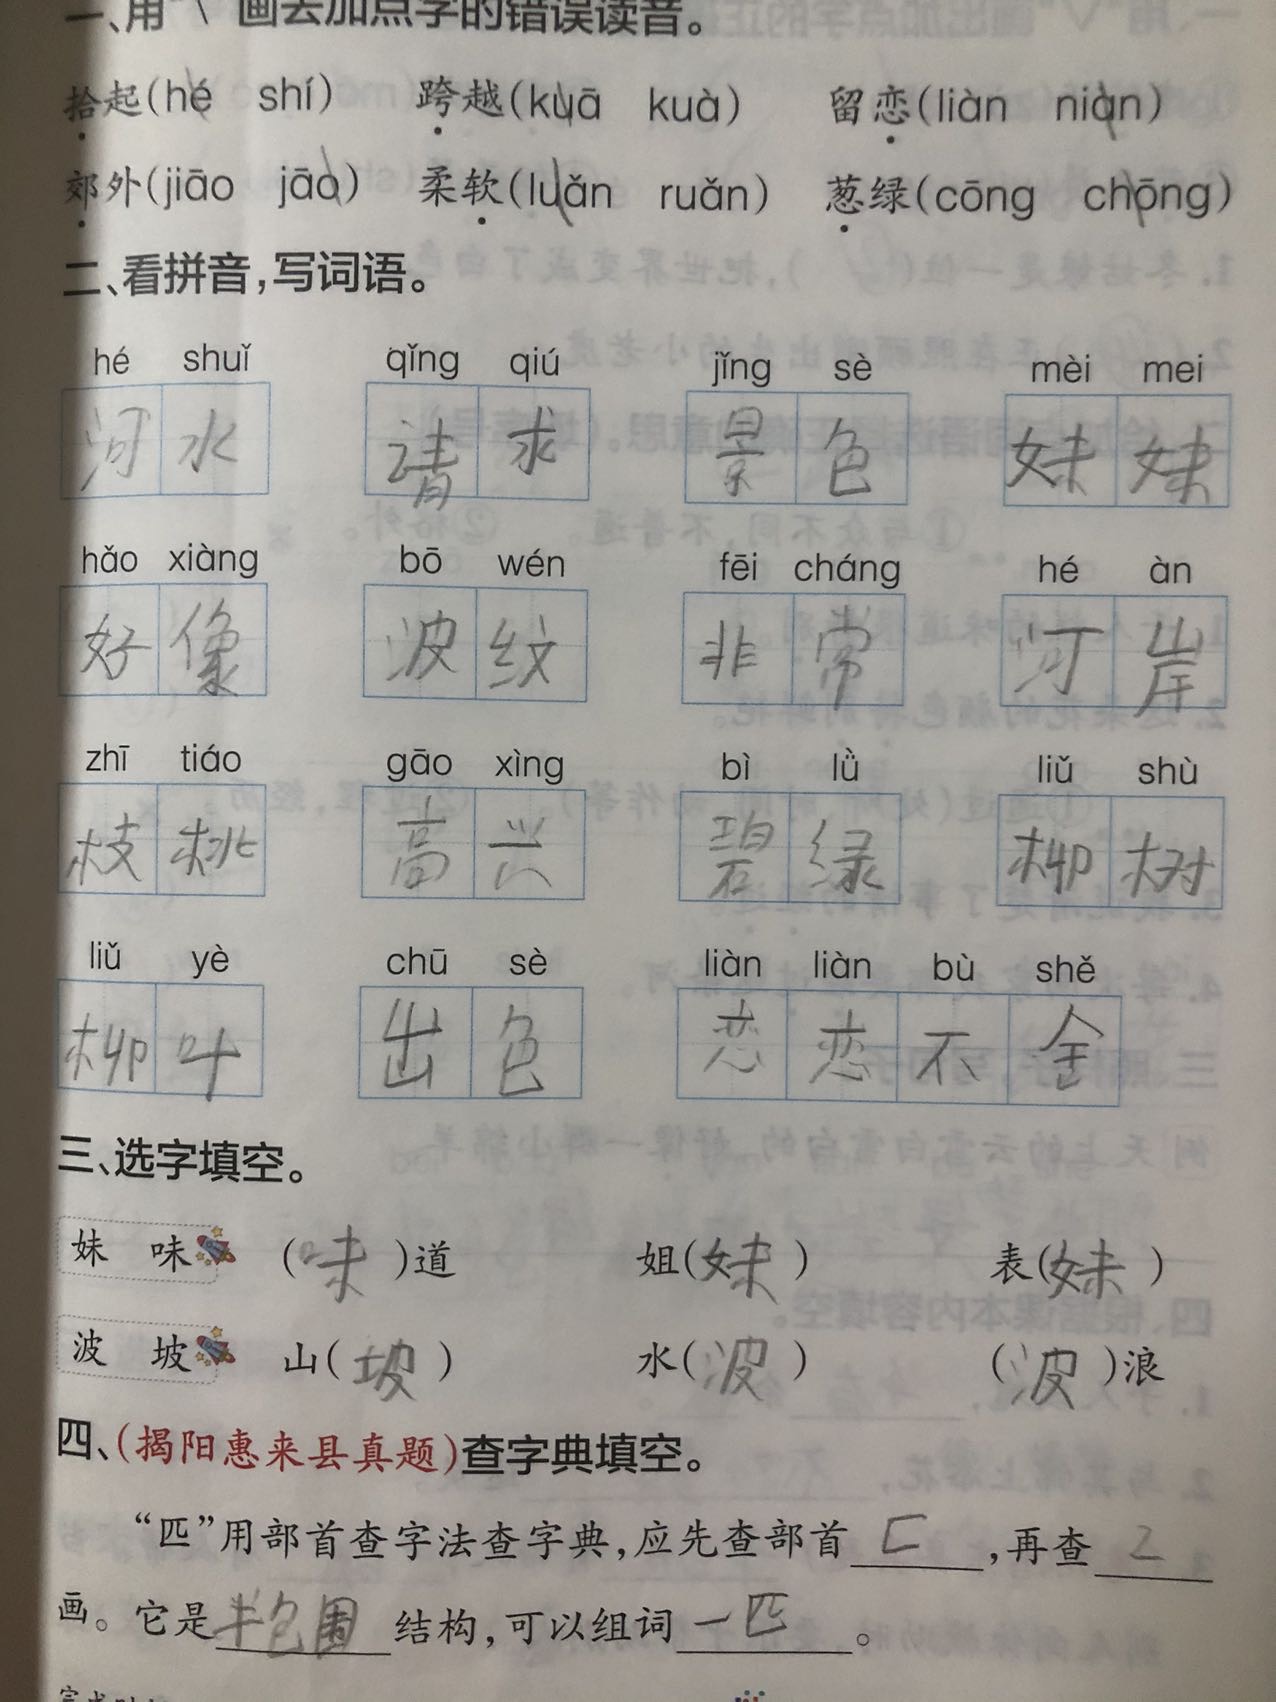 一、用“\”画去加点字的错误读音。
拾起(hé shí) 跨越(kuā kuà) 留恋(liàn niàn)
郊外(jiāo jāo) 柔软(luǎn ruǎn) 葱绿(cōng chōng)
二、看拼音,写词语。
hé shuǐ qǐng qiú jǐng sè mèi mei
河水 请求 景色 妹妹
hǎo xiàng bō wén fēi cháng hé àn
好像 波纹 非常 河岸
zhī tiáo gāo xìng bì lǜ liǔ shù
枝桃 高兴 碧绿 柳树
liǔ yè chū sè liàn liàn bù shě
柳叶 出色 恋恋不舍
三、选字填空。
妹 味 (味)道 姐(妹) 表(妹)
波 坡 山(坡) 水(波) (波)浪
四、(揭阳惠来县真题)查字典填空。
“匹”用部首查字法查字典,应先查部首匚,再查2
画。它是半包围结构,可以组词一匹。